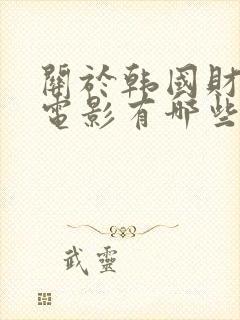 關於韩國財
電影有哪些
武靈